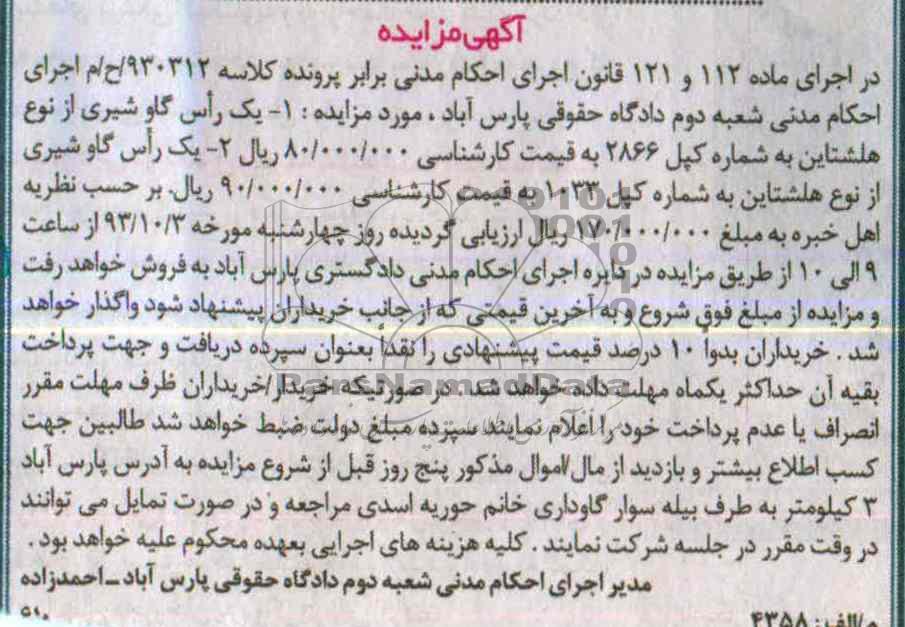 آگهی مزایده
در اجرای ماده ۱۱۲ و ۱۲۱ قانون اجرای احکام مدنی برابر پرونده کلاسه ۹۳۰۳۱۲/ح/م اجرای
احکام مدنی شعبه دوم دادگاه حقوقی پارس آباد ، مورد مزایده : ۱- یک رأس گاو شیری از نوع
هلشتاین به شماره کپل ۲۸۶۶ به قیمت کارشناسی ۸۰/۰۰۰/۰۰۰ ریال ۲- یک رأس گاو شیری
از نوع هلشتاین به شماره کپل ۱۰۳۳ به قیمت کارشناسی ۹۰/۰۰۰/۰۰۰ ریال. بر حسب نظریه
اهل خبره به مبلغ ۱۷۰/۰۰۰/۰۰۰ ریال ارزیابی گردیده روز چهارشنبه مورخه ۹۳/۱۰/۳ از ساعت
۹ الی ۱۰ از طریق مزایده در دایره اجرای احکام مدنی دادگستری پارس آباد به فروش خواهد رفت
و مزایده از مبلغ فوق شروع و به آخرین قیمتی که از جانب خریداران پیشنهاد شود واگذار خواهد
شد . خریداران بدواً ۱۰ درصد قیمت پیشنهادی را نقداً بعنوان سپرده دریافت و جهت پرداخت
بقیه آن حداکثر یکماه مهلت داده خواهد شد . در صورتیکه خریدار/خریداران ظرف مهلت مقرر
انصراف یا عدم پرداخت خود را اعلام نمایند سپرده مبلغ دولت ضبط خواهد شد طالبین جهت
کسب اطلاع بیشتر و بازدید از مال/اموال مذکور پنج روز قبل از شروع مزایده به آدرس پارس آباد
۳ کیلومتر به طرف بیله سوار گاوداری خانم حوریه اسدی مراجعه و در صورت تمایل می توانند
در وقت مقرر در جلسه شرکت نمایند . کلیه هزینه های اجرایی بعهده محکوم علیه خواهد بود .
مدیر اجرای احکام مدنی شعبه دوم دادگاه حقوقی پارس آباد ـ احمدزاده
م/الف: ۴۳۵۸
ParsNamadData